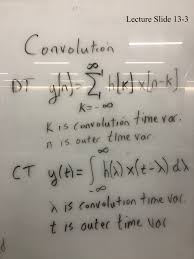 Lecture Slide 13-3
Convolution
∞
DT y[n] = Σ h[k] x[n-k]
k=-∞
k is convolution time var.
n is outer time var
∞
CT y(t) = ∫ h(λ) x(t-λ) dλ
-∞
λ is convolution time var.
t is outer time var